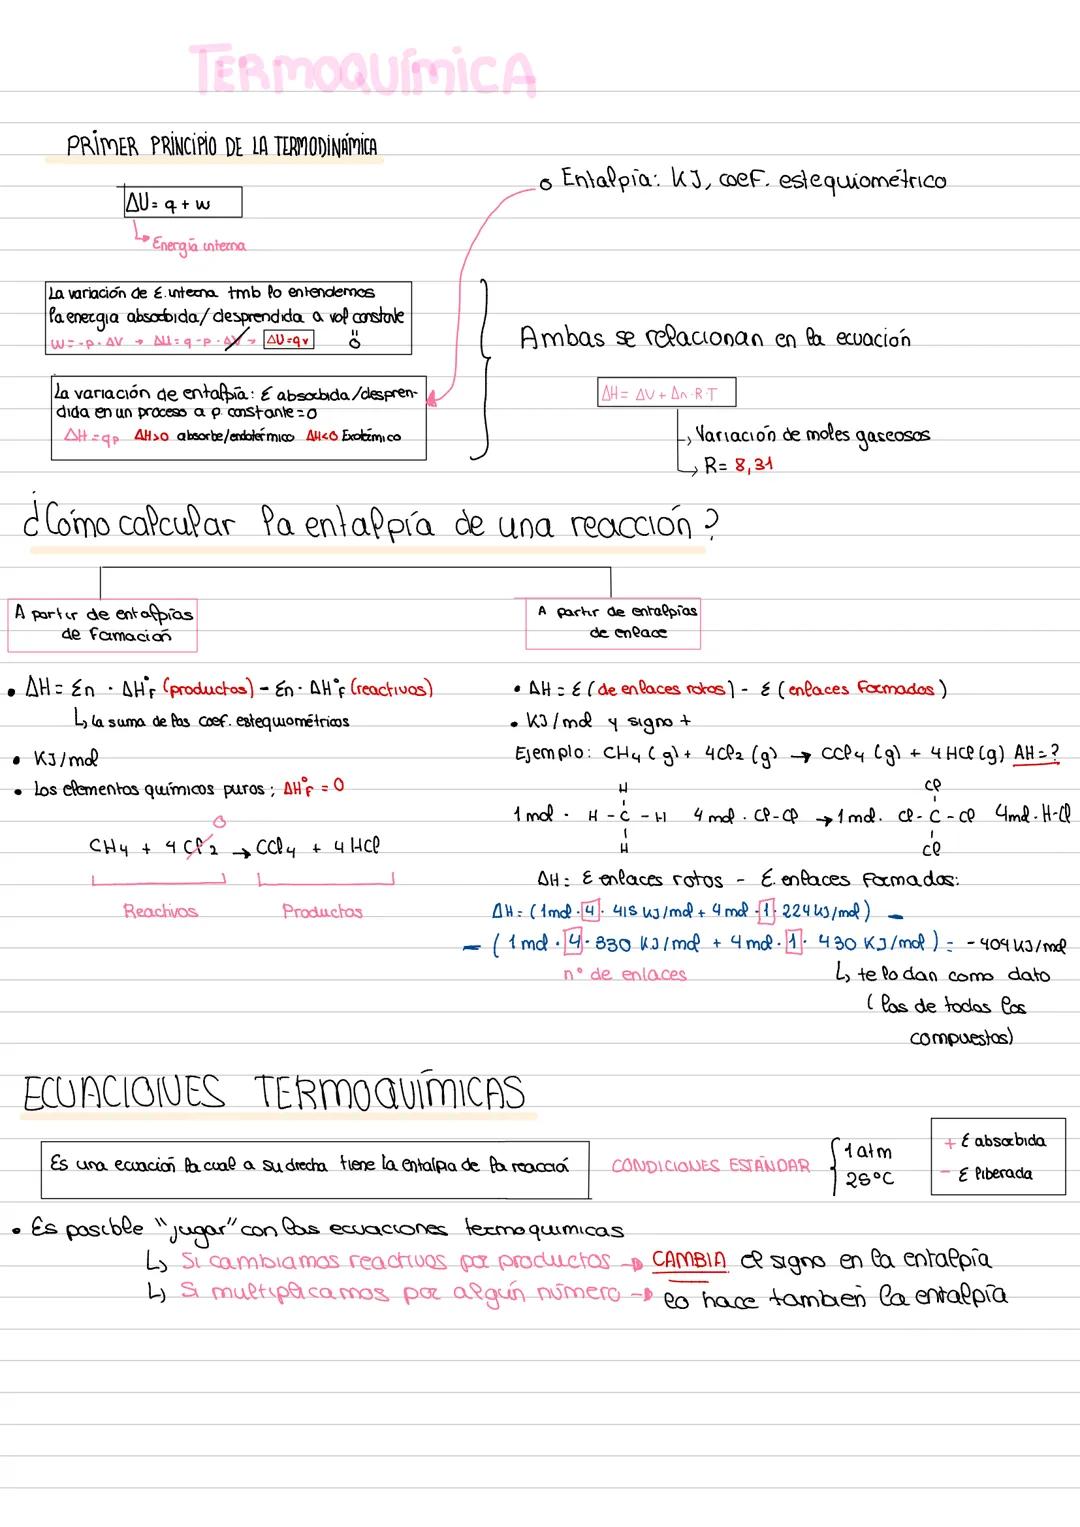 TERMOQUÍMICA
PRIMER PRINCIPIO DE LA TERMODINÁMICA
ΔU= q + w
↳ Energía interna
o Entalpía: KJ, coef. estequiométrico
La variación de E.interna tmb lo entendemos
la energia absorbida/desprendida a vol constante
W=-p.ΔV → ΔU=q-p.ΔV → ΔU=qv
La variación de entalpía: E absorbida/despren-
dida en un proceso a p constante=0
ΔH=qp ΔH>0 absorbe/endotérmico ΔH<0 Exotérmico
Ambas se relacionan en la ecuación
ΔH= ΔU + Δn·R·T
↳ Variación de moles gaseosos
↳ R= 8,31
¿Cómo calcular la entalpía de una reacción?
A partir de entalpías
de formación
• ΔH= Σn · ΔH°F (productos) - Σn · ΔH°F (reactivos)
↳ la suma de los coef. estequiométricos
• KJ/mol
• Los elementos químicos puros; ΔH°F = 0
0
CH4 + 4 Cl2 → CCl4 + 4 HCl
Reactivos Productos
A partir de entalpías
de enlace
• ΔH = Σ (de enlaces rotos) - Σ (enlaces formados)
• KJ/mol y signo +
Ejemplo: CH4 (g) + 4Cl2 (g) → CCl4 (g) + 4 HCl (g) ΔH=?
H Cl
1 mol · H - C - H 4 mol · Cl-Cl → 1 mol. Cl - C - Cl 4mol·H-Cl
H Cl
ΔH: Σ enlaces rotos - Σ. enlaces formados:
ΔH= (1mol · 4 · 415 KJ/mol + 4 mol · 1 · 224 KJ/mol) -
- (1 mol · 4 · 330 KJ/mol + 4 mol · 1 · 430 KJ/mol) = - 404 KJ/mol
n° de enlaces
↳ te lo dan como dato
(los de todos los
compuestos)
ECUACIONES TERMOQUÍMICAS
Es una ecuación la cual a su drecha tiene la entalpia de la reacció
CONDICIONES ESTÁNDAR { 1 atm
25°C
+ E absorbida
- E liberada
• Es posible "jugar" con las ecuaciones termoquimicas
↳ Si cambiamos reactivos por productos → CAMBIA el signo en la entalpía
↳ Si multiplicamos por algún número → lo hace también la entalpía